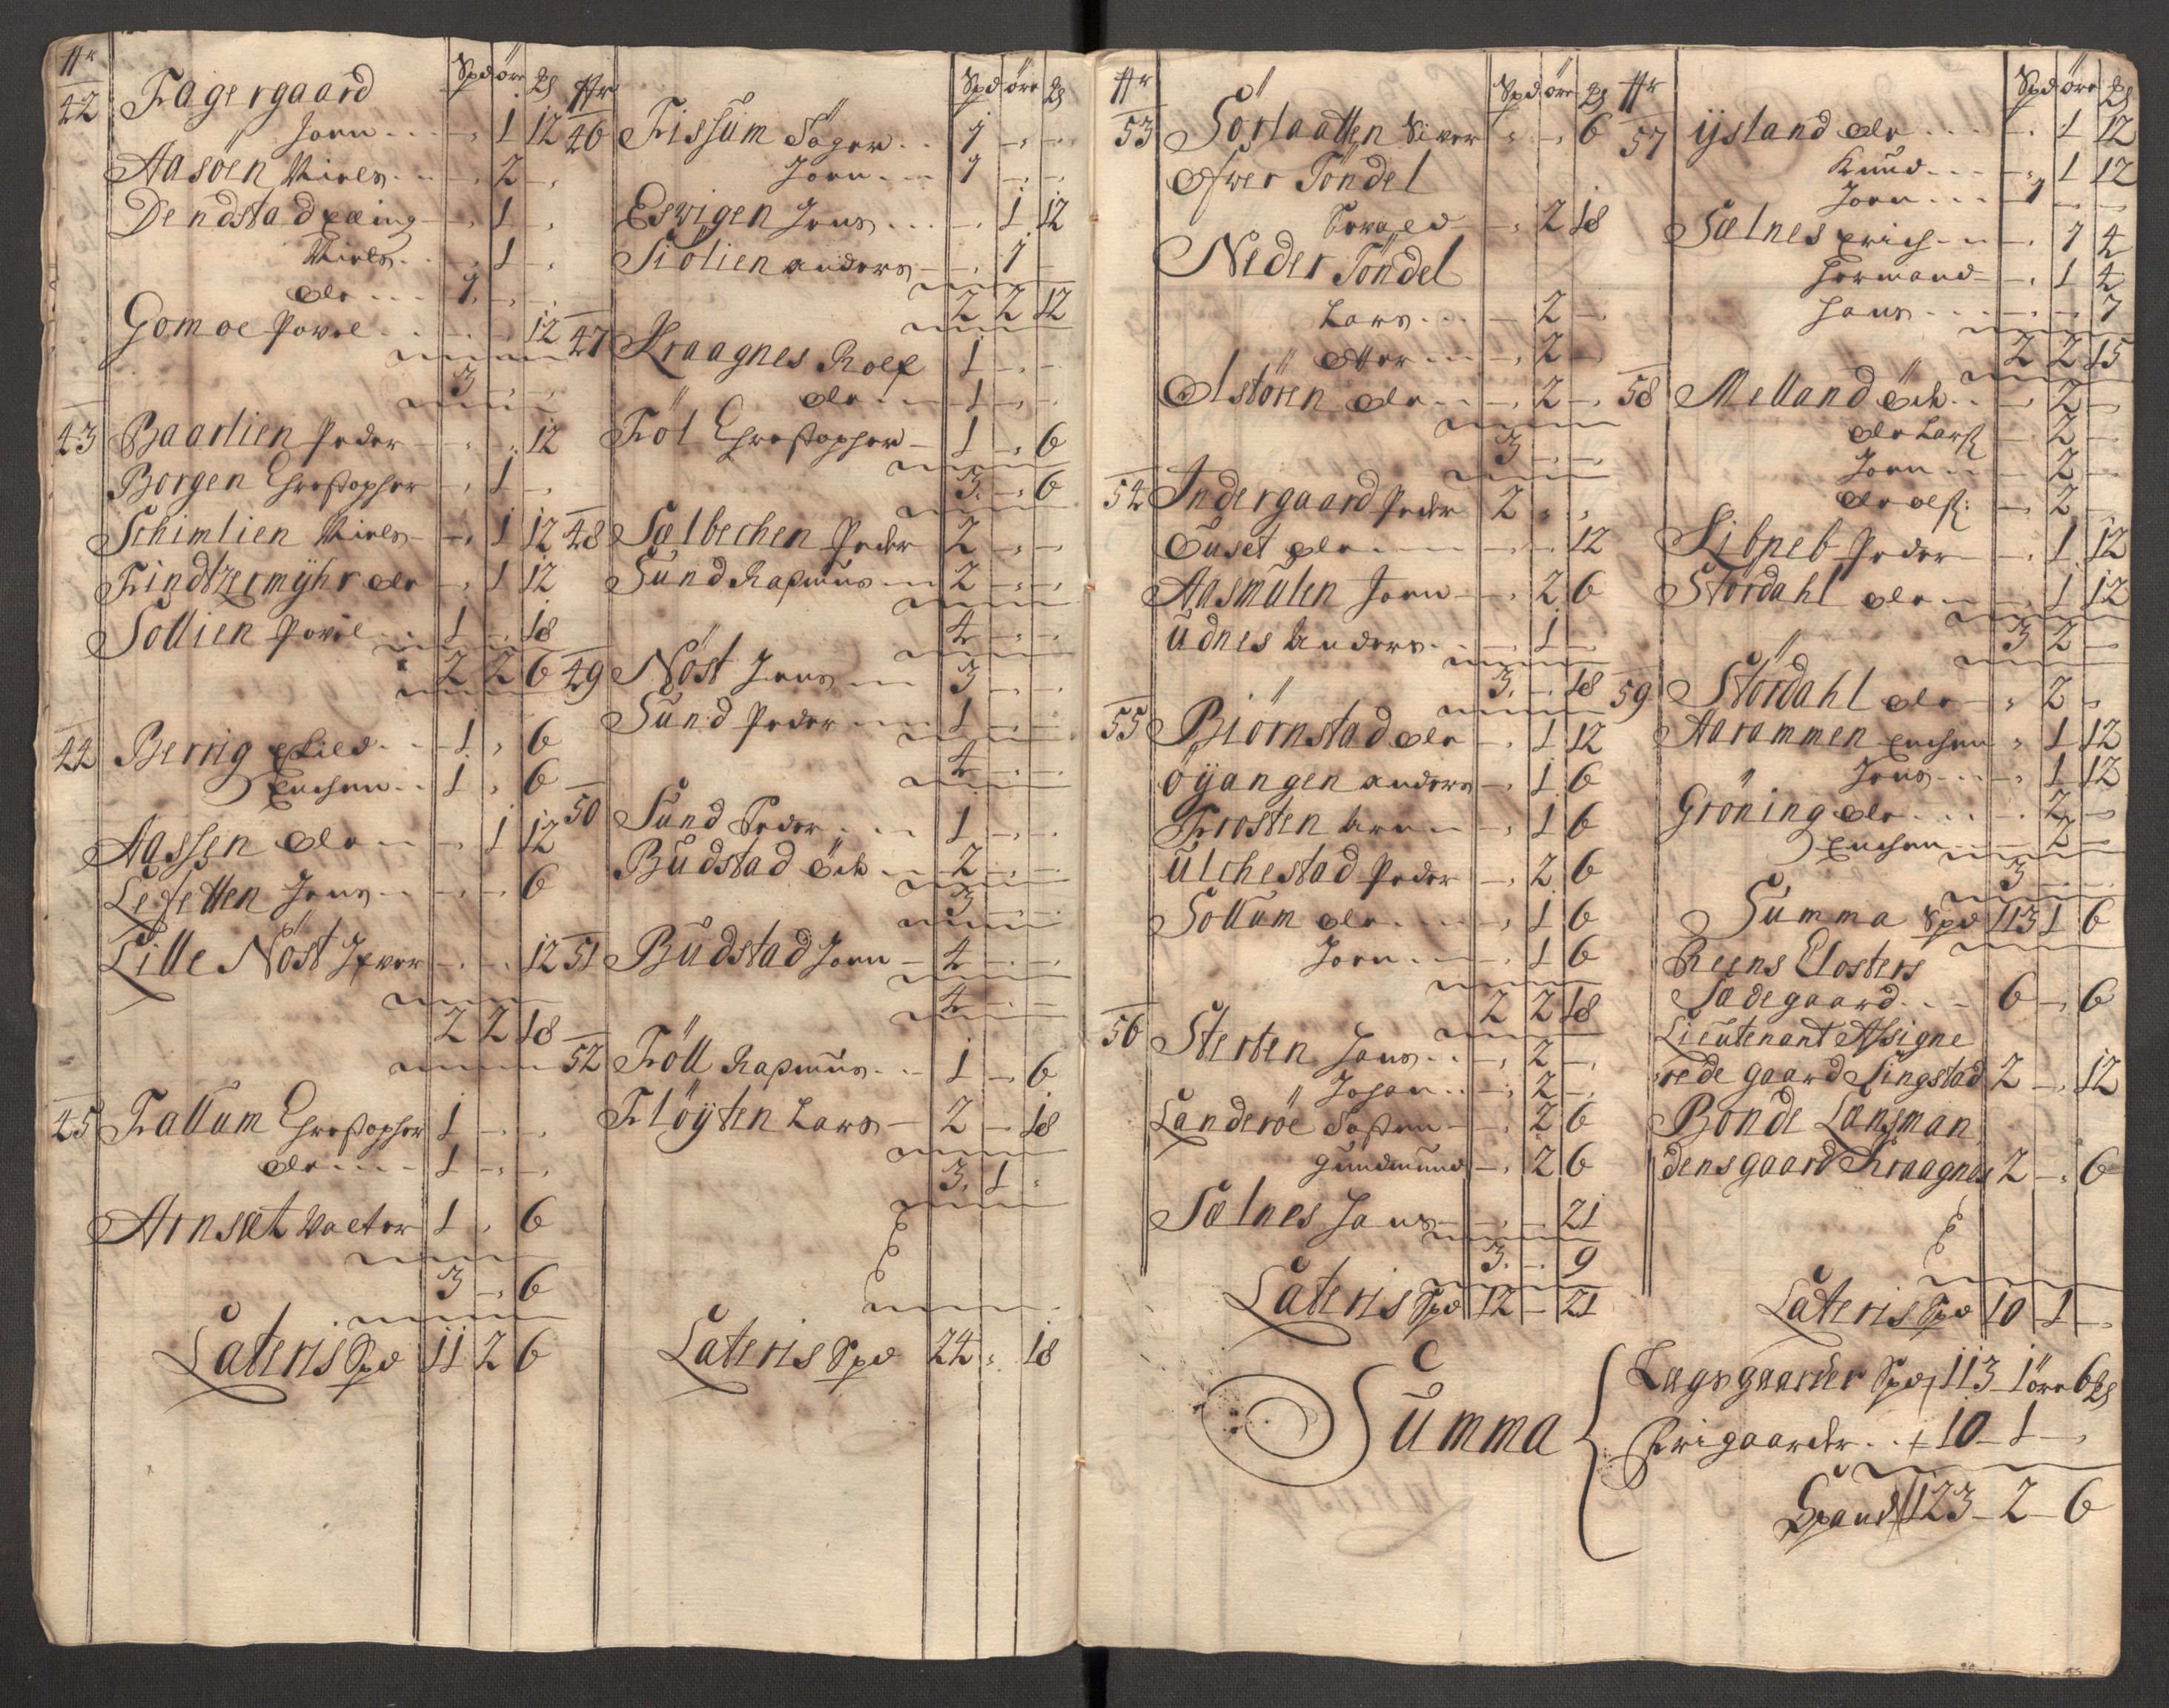 Nr Spd öre ₰
42 Fagergaard
Joen . . . - , 1 12
Aasöen Niels . . - , 2 - ,
Dendstad Eling - , 1 - ,
Niels . . - , 1 - ,
Ole . . . 1 , - , -
Gomoe Povel . . . . . 12
3 - , -
43 Baarlien Peder - , . , 12
Borgen Christopher - , 1 - ,
Schimlien Niels - - , 1 12
Findtzermÿhr Ole - , 1 12
Sollien Povel . . 1 - , 18
2 2 6
44 Berrig Eled . . - 1 , 6
Enchen . . 1 , 6
Aassen Ole - - - , 1 12
Lefsetten Jens - - - , - , 6
Lille Nöst Iver - . - . 12
2 2 18
45 Fallum Christopher 1 - , - ,
Ole . . . . - 1 - , - ,
Arnset Valter 1 , 6
3 - , 6
Lateris Spd 11 2 6
Nr Spd öre ₰
46 Fissum Söger . . 1 - , - ,
Joen . . . 1 - , - ,
Eswigen Jens . . . - , 1 12
Siölien Anders - - , 1 -
2 2 12
47 Kraagnes Rolf 1 - , -
Ole - - - 1 - , -
Föl Christopher - 1 - , 6
3 - , 6
48 Sælbechen Peder 2 - , -
Sund Rasmus - - 2 - , -
4 - , -
49 Nöst Jens - - 3 - , -
Sund Peder - - 1 - , -
4 - , -
50 Sund Peder . . . 1 - , -
Budstad Och - - 2 - , -
3 - , -
51 Budstad Joen - 4 - , -
4 - , -
52 Föll Rasmus . . . 1 - , 6
Fløÿten Lars - 2 - 18
3 , 1 ,
Lateris Spd 24 , 18
Nr Spd öre ₰
53 Sörlaatten Siver , - , 6
Ofwer Töndel
Tord - , 2 18
Neder Töndel
Lars . . . - 2 - ,
Otter - - - , 2 -
Olstören Ole - - - , 2 - ,
3 - , - ,
54 Indergaard Peder 2 , - ,
Ouset Ole - - - - , . . 12
Aasmulen Joen - - , 2 6
Udnes Anders . - , 1 -
3 , - , 18
55 Biörnstad Ole - , 1 12
öÿangen Anders - , 1 6
Frosten Arn - - , 1 6
Ulchestad Peder - , 2 6
Sollum Ole . . . . - , 1 6
Joen - - - , 1 6
2 2 18
56 Sterten Jens . . - , 2 - ,
Johan . . - , 2 - ,
Landeröe Sosten - - , 2 6
Gundmund - , 2 6
Sælnes Hans - - , - 21
3 , - , 9
Lateris Spd 12 - 21
Nr Spd öre ₰
57 ÿsland Ole . . . . - . 1 12
Knud . . . - , 1 12
Joen . . . - 1 - , -
Sælnes Erich - - - , 1 4
Hermand - - , 1 4
Hans . . . - , - , 7
2 2 15
58 Melland Och . . - , 2 -
Ole Larss: - 2 -
Joen . . . - 2 -
Ole Olss: - , 2 -
Libneb Peder - - , 1 12
Stördahl Ole - - , 1 12
3 2 -
59 Stördahl Ole - , 2 -
Aarammen Enchen , 1 12
Jens . . . - , 1 12
Gröning Ole . . . . - , 2 -
Enchen - - - , 2 -
3 - , -
Summa Spd 113 1 6
Reens Closters
Sædegaard . . - 6 - , 6
Lieutenant Assigne
rede gaard Singstad 2 - , 12
Bonde Lansman
densgaard Kraagnes 2 - , 6
Lateris Spd 10 1 - ,
Summa
Lægsgaarder Spd 113 - 1 öre 6 ₰
Frigaarder . . , 10 - 1 - ,
Spand 123 - 2 - 6